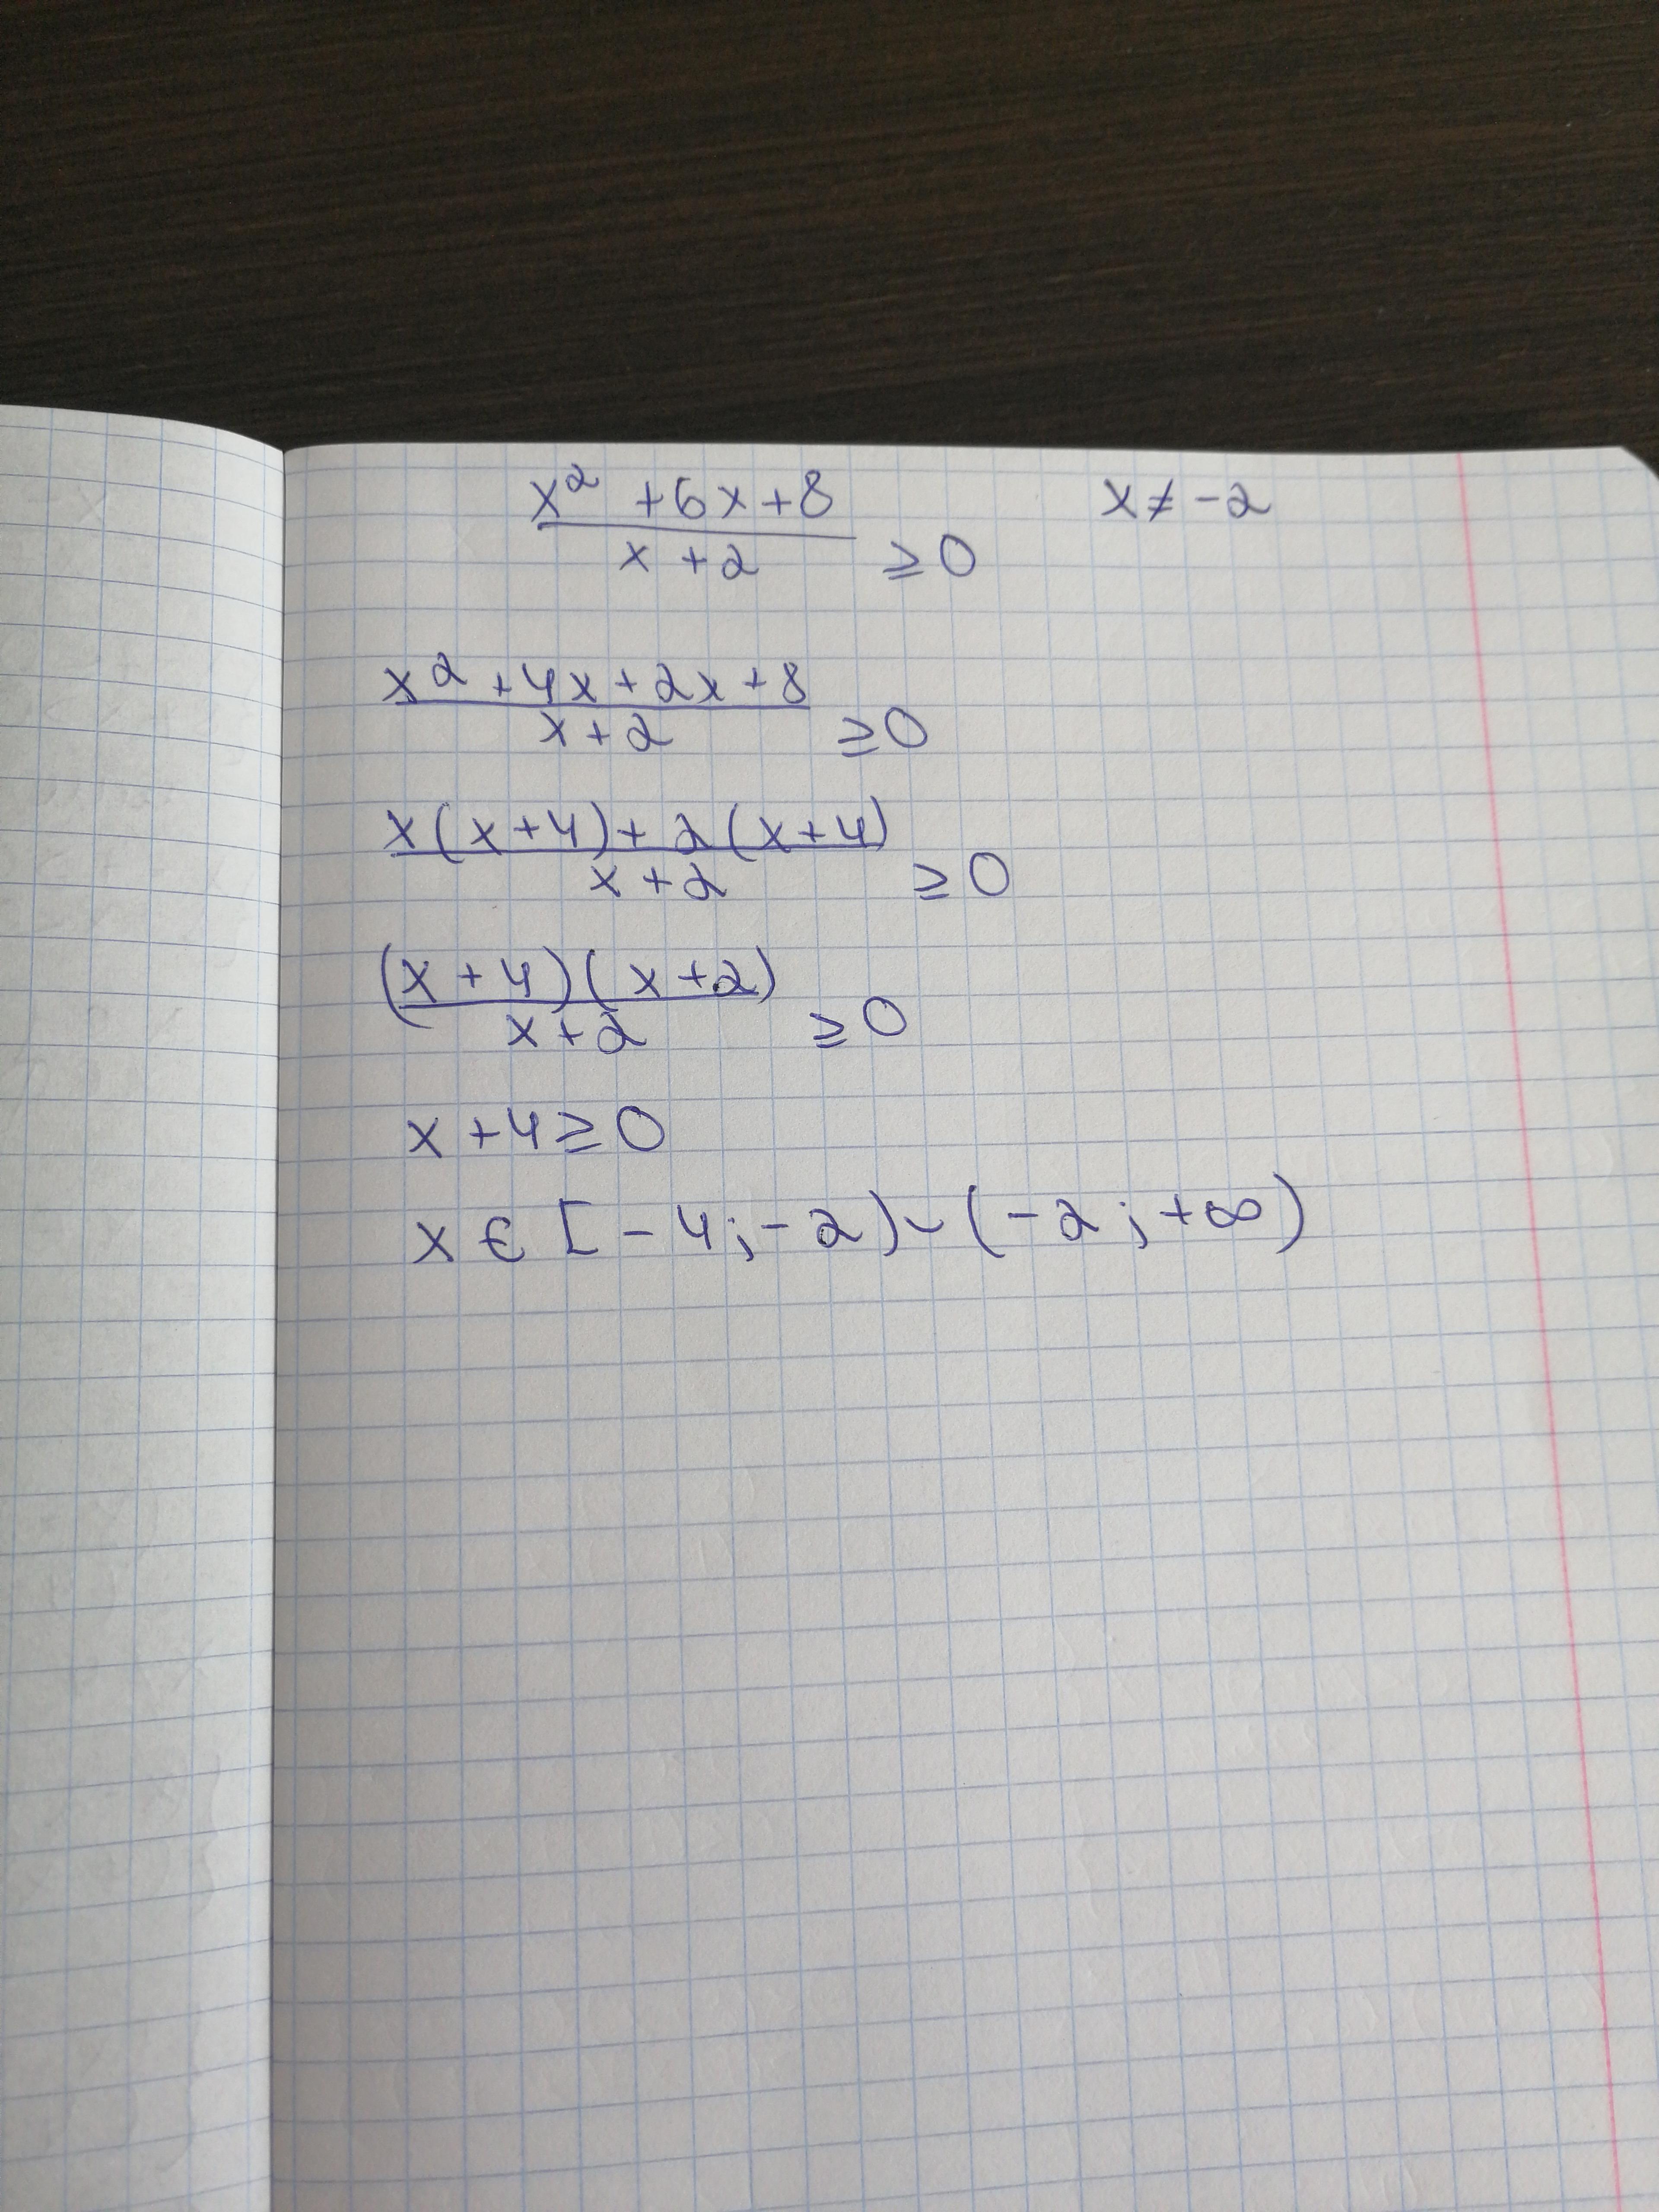 x² + 6x + 8 / x + 2 ≥ 0 x ≠ -2
x² + 4x + 2x + 8 / x + 2 ≥ 0
x(x + 4) + 2(x + 4) / x + 2 ≥ 0
(x + 4)(x + 2) / x + 2 ≥ 0
x + 4 ≥ 0
x ∈ [-4; -2) ∪ (-2; +∞)